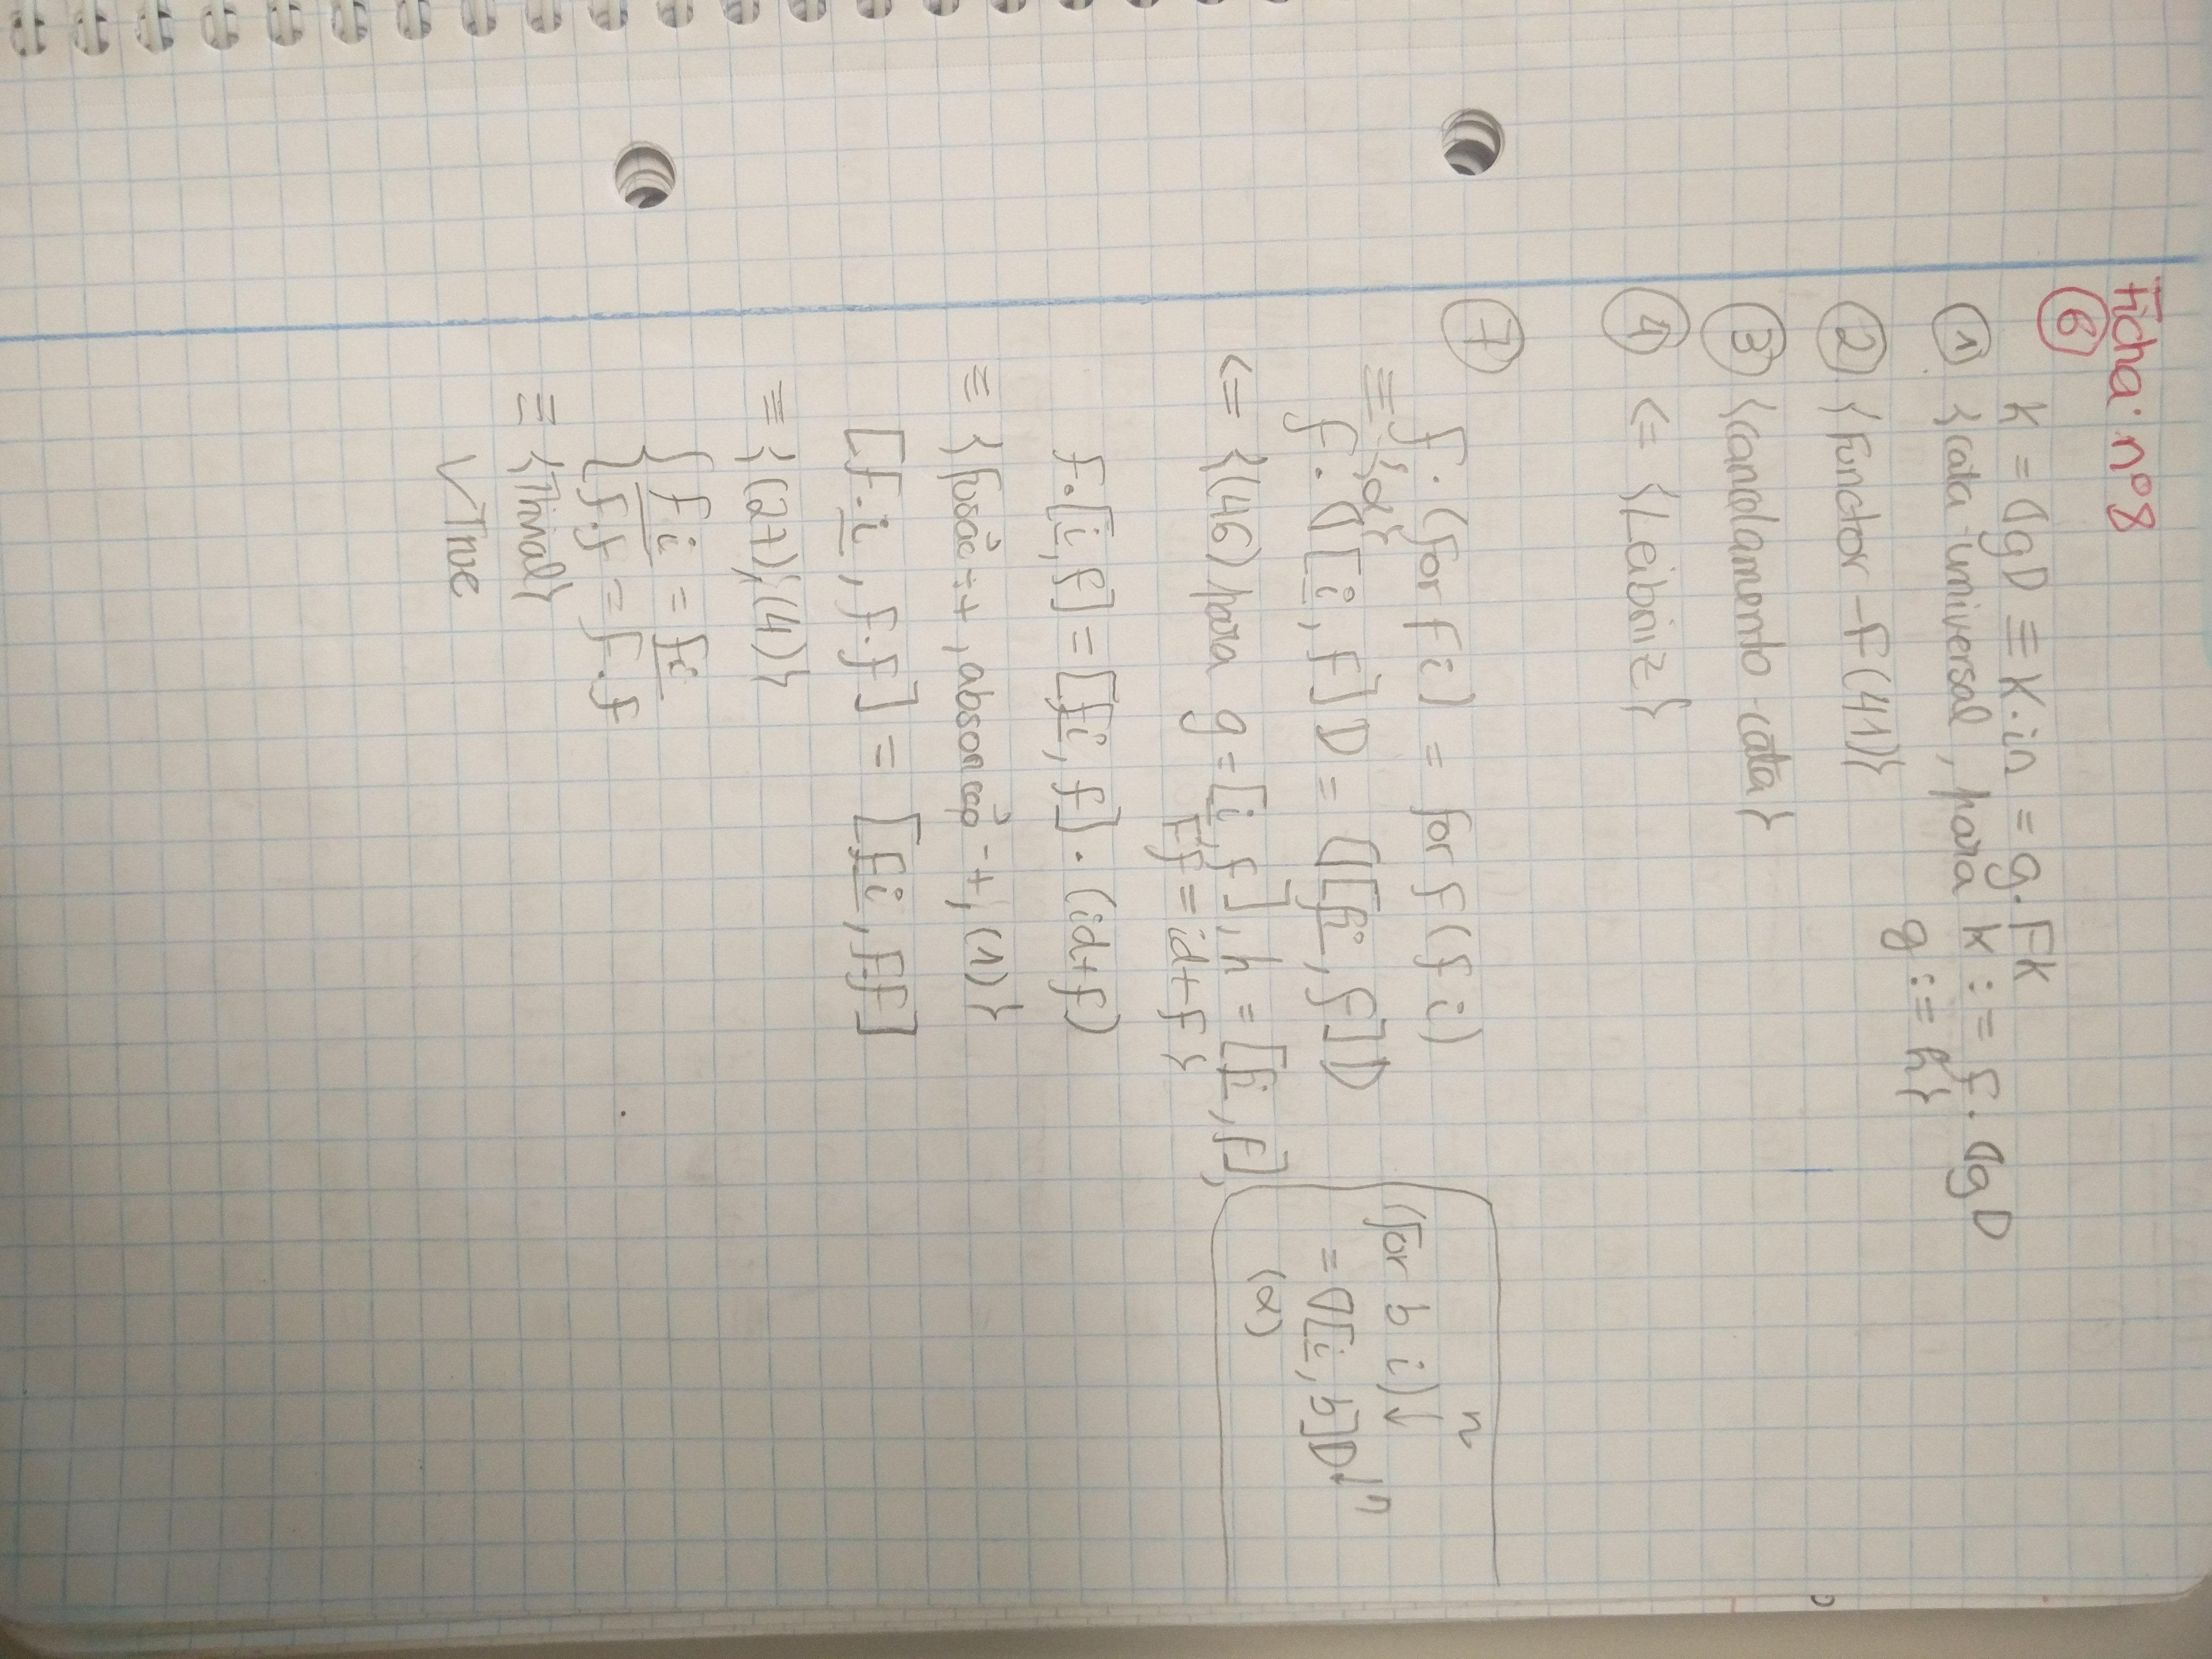 Ficha nº8
6
K = ⦇g⦈ ≡ K·in = g·FK
1 {cata-universal, para K := f·⦇g⦈
g := h}
2 {Functor-F(41)}
3 {cancelamento-cata}
4 <= {Leibniz}
7
f·(for f i) = for f (f i)
≡ {α}
f·⦇[i̲, f]⦈ = ⦇[f̲i̲, f]⦈
<= {(46) para g=[i̲, f], h=[f̲i̲, f],
Ff = id+f}
f·[i̲, f] = [f̲i̲, f]·(id+f)
≡ {fusão-+, absorção-+, (1)}
[f·i̲, f·f] = [f̲i̲, f·f]
≡ {(27);(4)}
{f̲ i̲ = f̲i̲
{f·f = f·f
≡ {Trivial}
✓True
n
(for b i)↓
= ⦇[i̲, b]⦈↓n
(α)